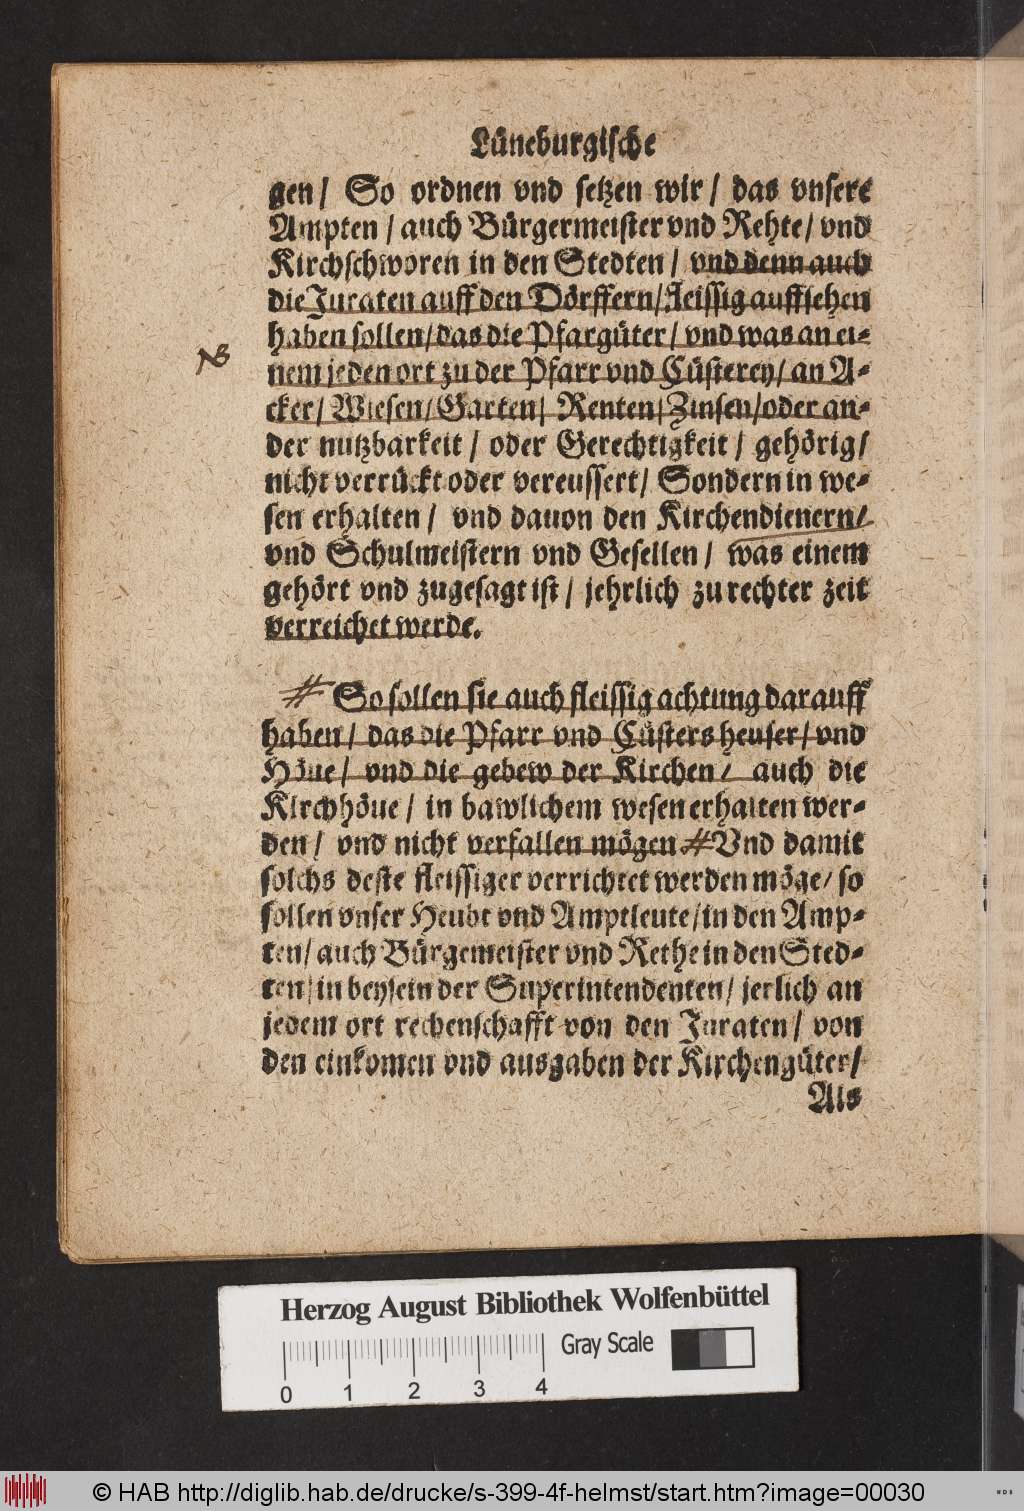 Lüneburgische
gen/ So ordnen vnd setzen wir/ das vnsere
Ampten/ auch Bürgermeister vnd Rehte/ vnd
Kirchschworen in den Stedten/ vnd denn auch
die Juraten auff den Dörffern/ fleissig auffsehen
haben sollen/ das die Pfargüter/ vnd was an ei-
NB
nem jeden ort zu der Pfarr vnd Cüsterey/ an A-
cker/ Wiesen/ Garten/ Renten/ Zinsen/ oder an-
der nutzbarkeit/ oder Gerechtigkeit/ gehörig/
nicht verrückt oder vereussert/ Sondern in we-
sen erhalten/ vnd dauon den Kirchendienern/
vnd Schulmeistern vnd Gesellen/ was einem
gehört vnd zugesagt ist/ jehrlich zu rechter zeit
verreichet werde.
# So sollen sie auch fleissig achtung darauff
haben/ das die Pfarr vnd Cüsters heuser/ vnd
Höue/ vnd die gebew der Kirchen/ auch die
Kirchhöue/ in bawlichem wesen erhalten wer-
den/ vnd nicht verfallen mögen # Vnd damit
solchs deste fleissiger verrichtet werden möge/ so
sollen vnser Heubt vnd Amptleute/ in den Amp-
ten/ auch Bürgemeister vnd Rethe in den Sted-
ten/ in beysein der Superintendenten/ jerlich an
jedem ort rechenschafft von den Juraten/ von
den einkomen vnd ausgaben der Kirchengüter/
Als
Herzog August Bibliothek Wolfenbüttel
Gray Scale
0 1 2 3 4
© HAB http://diglib.hab.de/drucke/s-399-4f-helmst/start.htm?image=00030